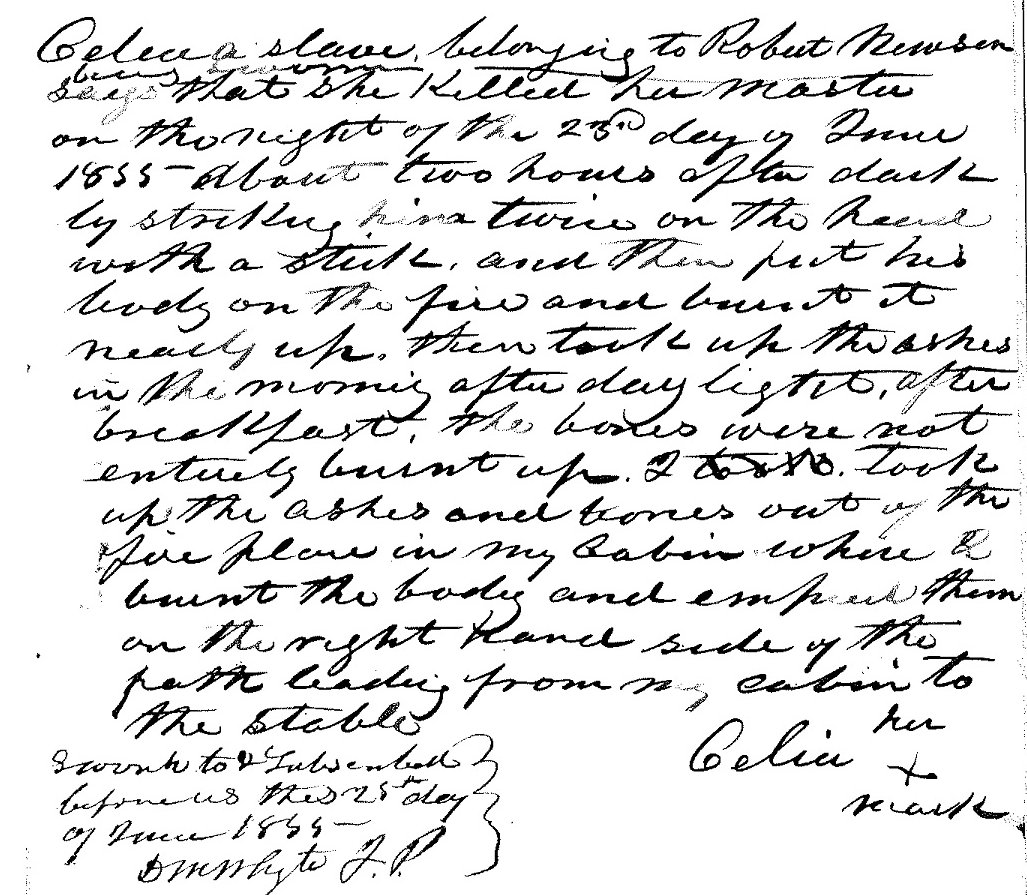 Celia a slave, belonging to Robert Newsom
being sworn
says that she killed her master
on the night of the 23rd day of June
1855 about two hours after dark
by striking him twice on the head
with a stick, and then put his
body on the fire and burnt it
nearly up, then took up the ashes
in the morning after day light, after
breakfast, the bones were not
entirely burnt up. I took
up the ashes and bones out of the
fire place in my Cabin where I
burnt the body and emptied them
on the right hand side of the
path leading from my cabin to
the stable
her
Celia X
mark
Sworn to & Subscribed
before us this 25th day
of June 1855
D M Whyte J. P.